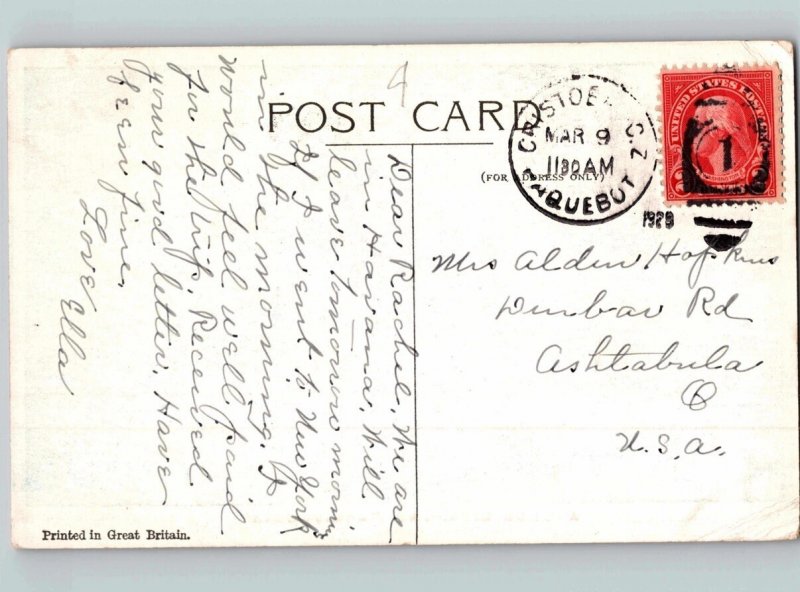 POST CARD
(FOR ADDRESS ONLY)
4
CRISTOBAL C.Z.
MAR 9
11 30 AM
PAQUEBOT
1929
1
UNITED STATES POSTAGE
WASHINGTON
2 CENTS 2
Dear Rachel, We are
in Havana, Will
leave tomorrow morn,
If I went to New York
in the morning. I
would feel well paid
for the trip. Received
your good letter. Have
been fine.
Love Ella
Mrs Alden Hopkins
Dunbar Rd
Ashtabula
O
U.S.A.
Printed in Great Britain.